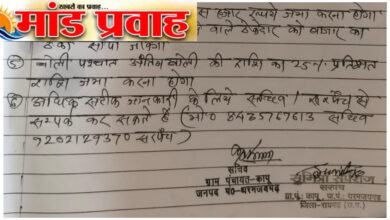 खबरों का प्रवाह...
मांड प्रवाह
हजार रूपये जमा करना होगा
वाले ठेकेदार को बाजार का
ठेका सौंपा जायेगा
⑤ बोली पश्चात अंतिम बोली की राशि का 25% प्रतिशत
राशि जमा करना होगा
⑥ अधिक सटीक जानकारी के लिये सचिव / सरपंच से
सम्पर्क कर सकते हैं (मो० 8435767613 सचिव
9202129370 सरपंच)
सचिव
ग्राम पंचायत-कापू
जनपद पं०-धरमजयगढ़
सरपंच
ग्रा.पं. कापू, ज.पं. धरमजयगढ़
जिला-रायगढ़ (छ.ग.)